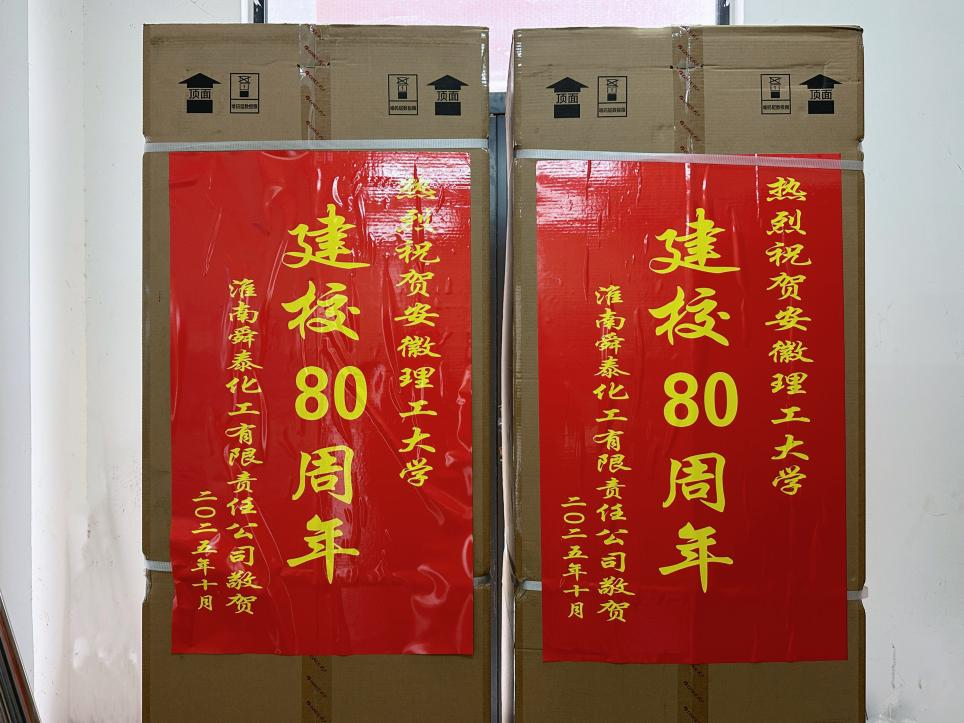 顶面
堆码层数极限
堆码层数极限
顶面
热烈祝贺安徽理工大学
建校80周年
淮南舜泰化工有限责任公司敬贺
二〇二五年十月
顶面
堆码层数极限
堆码层数极限
顶面
热烈祝贺安徽理工大学
建校80周年
淮南舜泰化工有限责任公司敬贺
二〇二五年十月